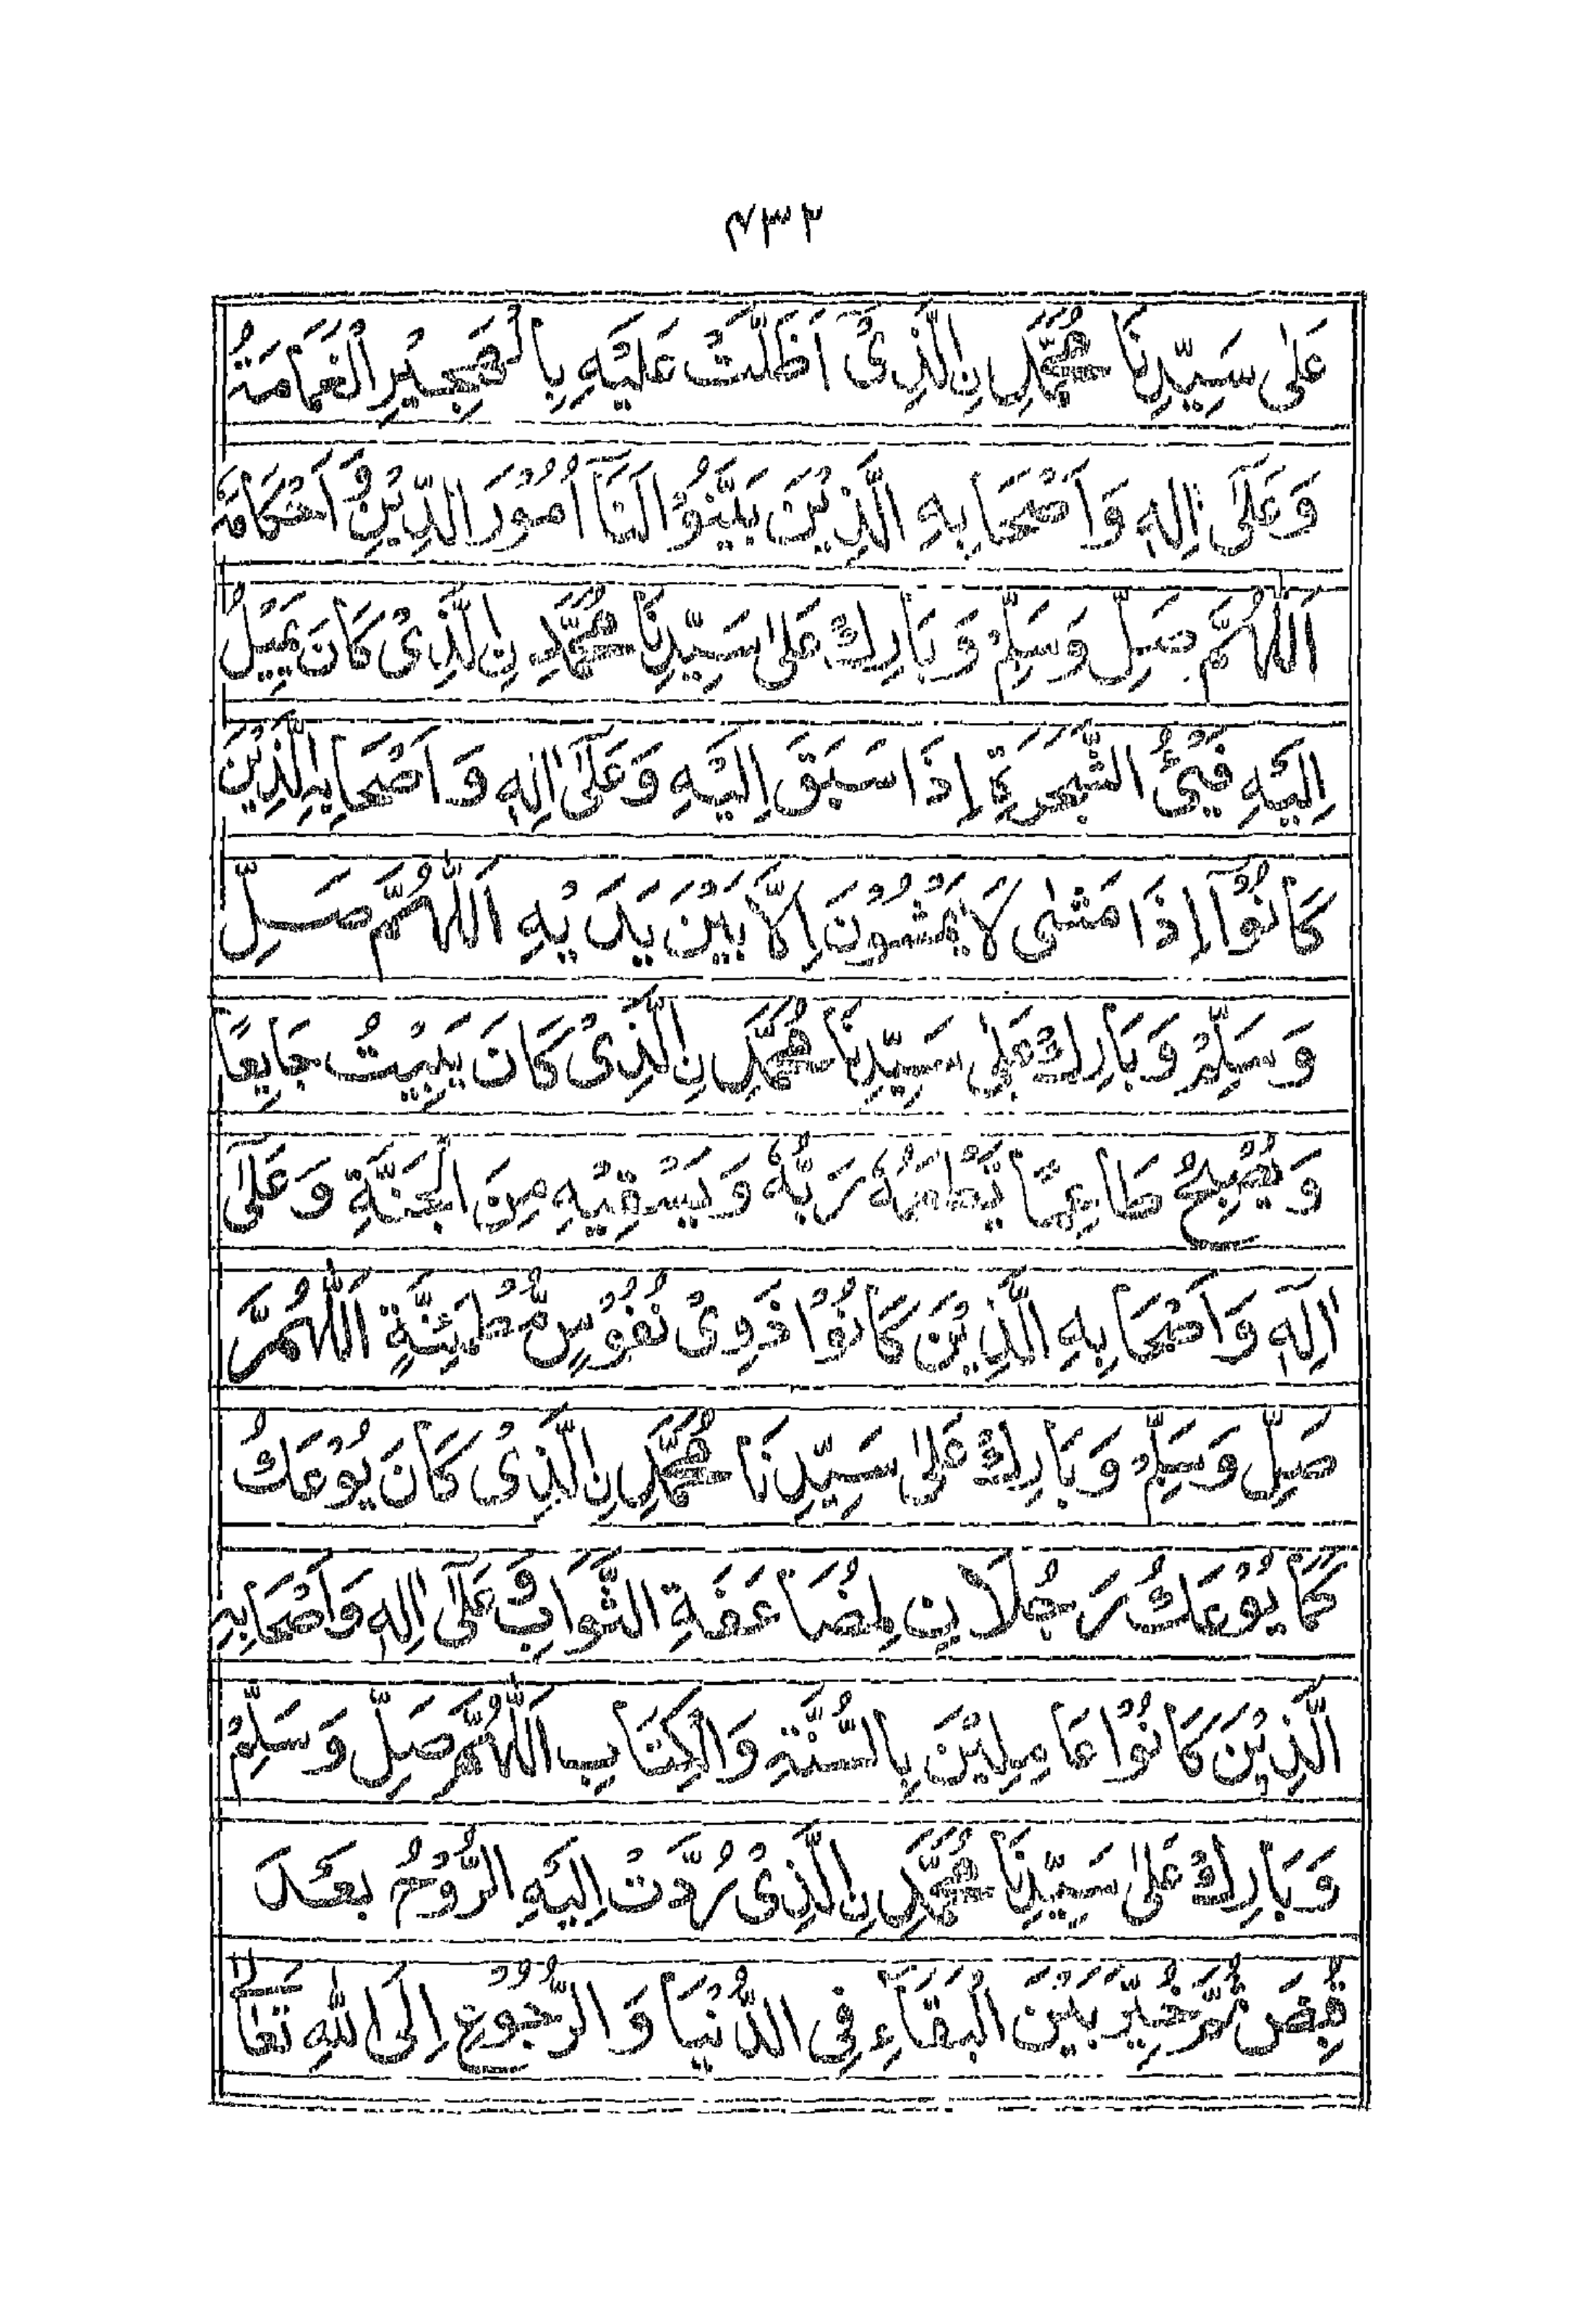 ۴۳۳
عَلٰى سَيِّدِنَا مُحَمَّدِ نِالَّذِىْ اَظَلَّتْ عَلَيْهِ بِالْهَجِيْرِ الْغَمَامَةُ
وَعَلٰٓى اٰلِهٖ وَاَصْحَابِهِ الَّذِيْنَ بَيَّنُوْا لَنَآ اُمُوْرَ الدِّيْنِ وَ اَحْكَامَهٗ
اَللّٰهُمَّ صَلِّ وَسَلِّمْ وَبَارِكْ عَلٰى سَيِّدِنَا مُحَمَّدِ نِالَّذِىْ كَانَ يَمِيْلُ
اِلَيْهِ فَيْئُ الشَّجَرَةِ اِذَا سَبَقَ اِلَيْهِ وَعَلٰٓى اٰلِهٖ وَاَصْحَابِهِ الَّذِيْنَ
كَانُوْٓا اِذَا مَشٰى لَا يَمْشُوْنَ اِلَّا بَيْنَ يَدَيْهِ اَللّٰهُمَّ صَلِّ
وَسَلِّمْ وَبَارِكْ عَلٰى سَيِّدِنَا مُحَمَّدِ نِالَّذِىْ كَانَ يَبِيْتُ جَايِعًا
وَيُصْبِحُ طَاعِمًا يُّطْعِمُهٗ رَبُّهٗ وَيَسْقِيْهِ مِنَ الْجَنَّةِ وَعَلٰٓى
اٰلِهٖ وَاَصْحَابِهِ الَّذِيْنَ كَانُوْا ذَوِىْ نُفُوْسٍ مُّطْمَئِنَّةٍ اَللّٰهُمَّ
صَلِّ وَسَلِّمْ وَبَارِكْ عَلٰى سَيِّدِنَا مُحَمَّدِ نِالَّذِىْ كَانَ يُوْعَكُ
كَمَا يُوْعَكُ رَجُلَانِ لِمُضَاعَفَةِ الثَّوَابِ وَ عَلٰٓى اٰلِهٖ وَاَصْحَابِهِ
الَّذِيْنَ كَانُوْا عَامِلِيْنَ بِالسُّنَّةِ وَالْكِتَابِ اَللّٰهُمَّ صَلِّ وَسَلِّمْ
وَبَارِكْ عَلٰى سَيِّدِنَا مُحَمَّدِ نِالَّذِىْ رُدَّتْ اِلَيْهِ الرُّوْحُ بَعْدَ
قُبِضَ ثُمَّ خُيِّرَ بَيْنَ الْبَقَآءِ فِى الدُّنْيَا وَالرُّجُوْعِ اِلَى اللّٰهِ تَعَالٰى